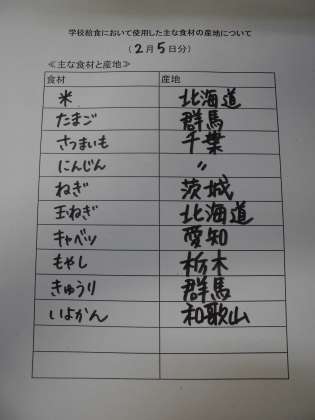 学校給食において使用した主な食材の産地について
(2月5日分)
≪主な食材と産地≫
食材 産地
米 北海道
たまご 群馬
さつまいも 千葉
にんじん 〃
ねぎ 茨城
玉ねぎ 北海道
キャベツ 愛知
もやし 栃木
きゅうり 群馬
いよかん 和歌山